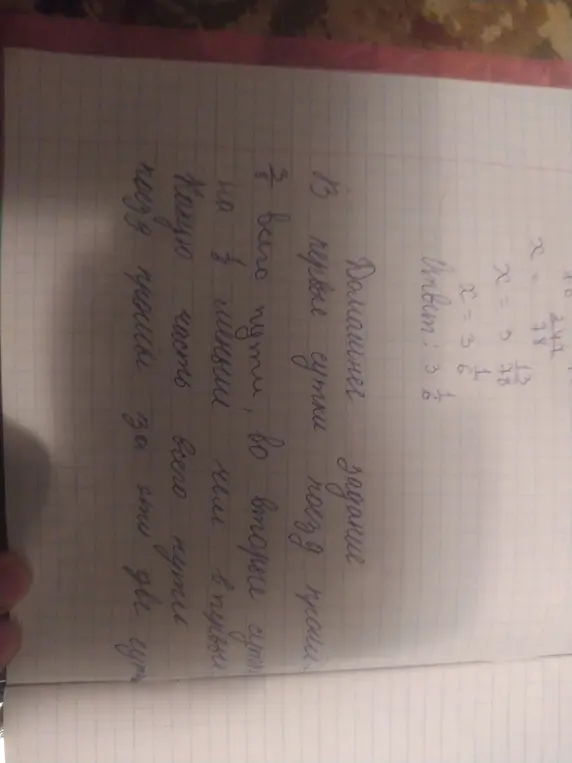 x = 247/78
x = 3 13/78
x = 3 1/6
Ответ: 3 1/6
Домашнее задание
В первые сутки поезд прошёл
3/8 всего пути, во вторые сутк
на меньше чем в первые.
Какую часть всего пути
поезд прошёл за эти две сутк